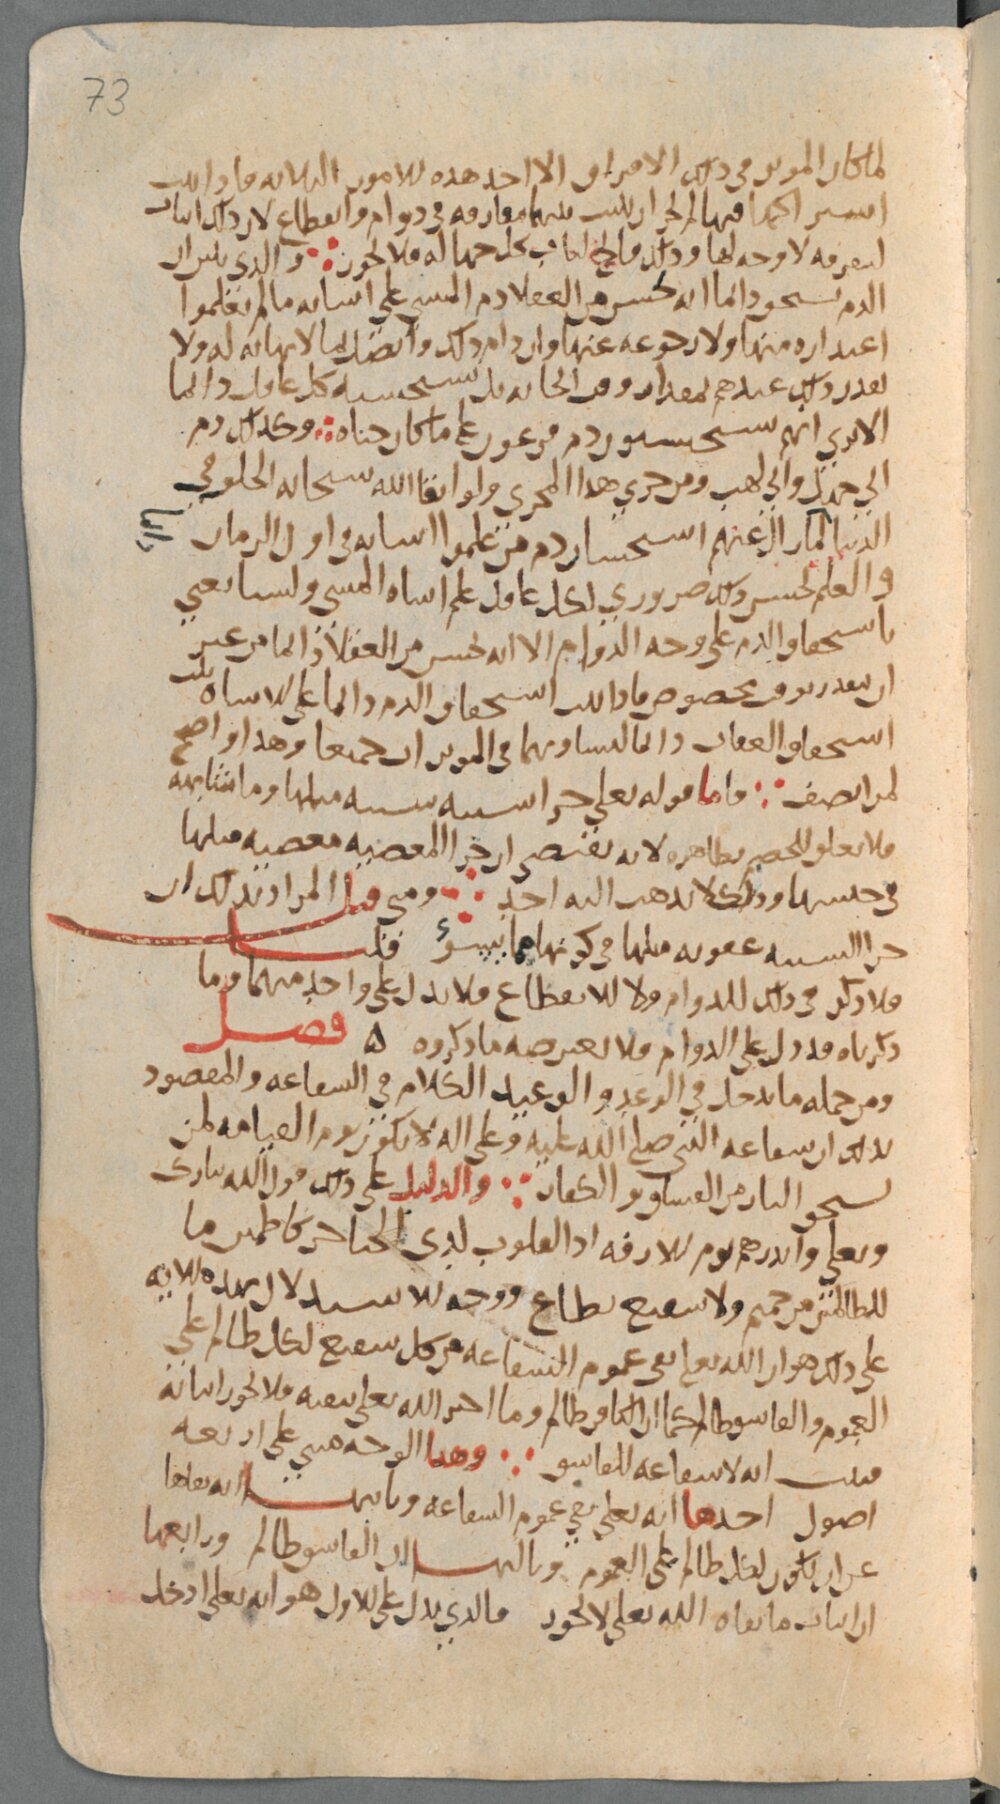 73
لما كان الموثر في ذلك الامر او الا احد هذه الامور الثلاثه فاذا ثبت
اشتراكهما فيها لم يجز ان يثبت بينهما مفارقه في دوام وانقطاع لان ذلك اثبات
لتفرقه لا وجه لها وذلك فاتح لباب كل جهاله فلا يجوز والذي يبين ان
الذم يستحق دائما انه يحسن من العقلا ذم المسي على اساته ما لم يعلموا
اعتذاره منها ولا رجوعه عنها وان دام ذلك واتصل لما لا نهايه له ولا
يقدر ذلك عندهم بمقدار ووقت الحال به بل يستحسنه كل عاقل دائما
الا ترى انهم يستحسنون ذم فرعون على ما كان جناه وكذلك ذم
ابي جهل وابي لهب ومن جرى هذا المجرى ولو ابقا الله سبحانه الخلق في
الدنيا لما زال عنهم استحسان ذم من علموا اساته في اول الزمان
دائما
و العلم بحسن ذلك ضروري لكل عاقل علم اساه المسي ولسنا نعني
باستحقاق الذم على وجه الدوام الا انه يحسن من العقلا دائما من غير
ان يتقدر بوقت مخصوص فاذا ثبت استحقاق الذم دائما على الاساه ثبت
استحقاق العقاب دائما لتساويهما في الموثرات جميعا وهذا واضح
لمن انصف واما قوله تعلى جزا سيئه سيئه مثلها وما شابهه
فلا تعلق للخصم بظاهره لانه يقتضي ان جزا المعصيه معصيه مثلها
في جنسها وذلك لا يذهب اليه احد ومتى قيل المراد بذلك ان
جزا السيئه عقوبه مثلها في كونها مما يسوء قلنا
فلا ذكر في ذلك للدوام ولا للانقطاع فلا يدل على واحد منهما وما
ذكرناه قد دل على الدوام فلا يعترضه ما ذكروه ه فصل
ومن جمله ما يدخل في الوعد والوعيد الكلام في الشفاعه والمقصود
بذلك ان شفاعه النبي صلى الله عليه وعلى اله لا تكون يوم القيامه لمن
يستحق النار من الفساق والكفار والدليل على ذلك قول الله تبارك
وتعلى وانذرهم يوم الازفه اذ القلوب لدى الحناجر كاظمين ما
للظالمين من حميم ولا شفيع يطاع ووجه الاستدلال بهذه الايه
على ذلك هو ان الله تعلى نفى عموم الشفاعه من كل شفيع لكل ظالم على
العموم والفاسق ظالم كما ان الكافر ظالم وما اخبر الله تعلى بنفيه فلا يجوز اثباته
فثبت انه لا شفاعه للفاسق وهذا الوجه مبني على اربعه
اصول احدها انه تعلى نفى عموم الشفاعه وثانيها انه نفاها
عن ان تكون لكل ظالم على العموم وثالثها ان الفاسق ظالم ورابعها
ان اثبات ما نفاه الله تعلى لا يجوز فالذي يدل على الاول هو انه تعلى ادخل